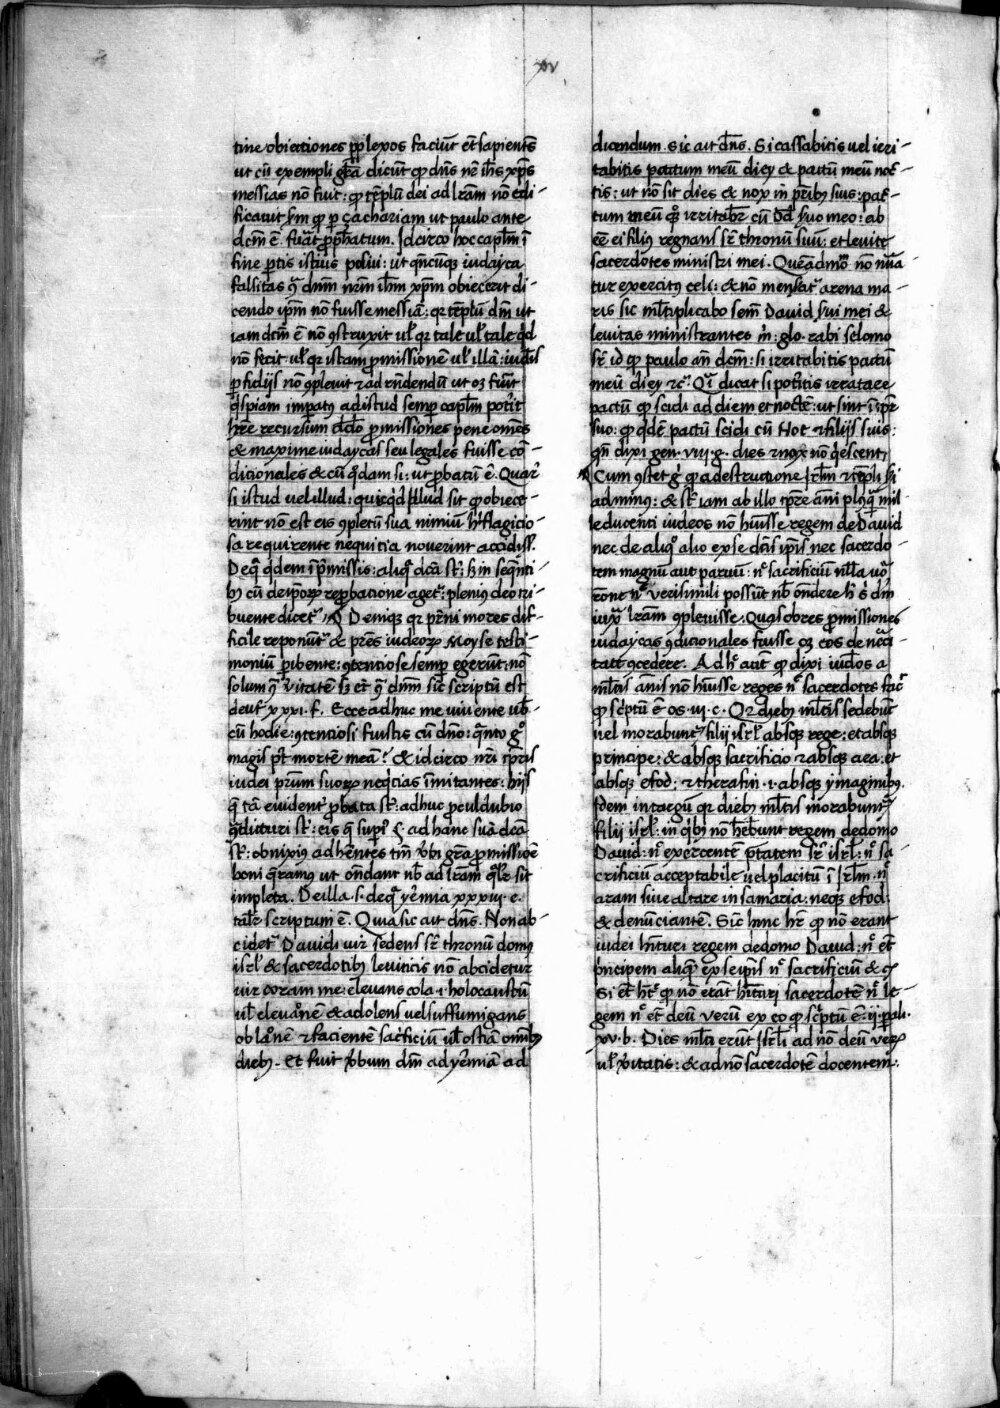 xv
tine obiectiones ꝑplexos faciu͞t et͞ sapientes
ut cu͞ exempli gr͞a dicu͞t ꝙ dn͞s nr͞ ih͞s xp͞s
messias no͞ fuit: ꝙ te͞plu͞ dei ad lr͞am no͞ edi-
ficauit sm͞ ꝙ ꝑ çachariam ut paulo ante-
dcm͞ e͞. fu͞at ꝓph͞atum. Idcirco hoc caplm͞ i͞
fine ꝑtis istius posui: ut qn͞cunqꝫ iudayca
falsitas ꝯ͞ dn͞m nr͞m ih͞m xp͞m obiecerit di-
cendo ip͞m no͞ fuisse messia͞: qꝛ te͞plu͞ dm͞ ut
iam dcm͞ e͞ no͞ ꝯstruxit ul̵ qꝛ tale ul̵ tale qd͞
no͞ fecit ul̵ qꝛ istam ꝓmissione͞ ul̵ illa͞: iude͞is
ꝑfidijs no͞ ꝯpleuit ⁊ ad rn͞dendu͞ ut oꝫ fiu͞t
q͞spiam imparꝰ ad istud semꝑ caplm͞ pot͞it
hr͞e recursum dcd͞o ꝓmissiones pene om͞es
& maxime iudaycas seu legales fuisse co͞-
dicionales & cu͞ qd͞am si: ut ꝓbatu͞ e͞. Quar͞
si istud uel illud: quicqd͞ illud sit ꝙ obiece-
rint no͞ est eis ꝯpletu͞ sua nimiu͞ h͞ flagicio-
sa requirente nequitia nouerint accidiss͞.
De q͞ qd͞em i͞ pm͞issis: aliq͞ dc͞a st͞: sꝫ in seqn͞ti-
bꝰ cu͞ de ip͞oꝝ reꝓbatione aget͞: plenius deo tri-
buente dicet͞. ¶ Denique qꝛ pr͞ni mores dif-
ficile reponu͞t͞ & pr͞es iudeoꝝ Moyse testi-
moniu͞ ꝑibente: ꝯtenciose semꝑ egeru͞t: no͞
solum ꝯ͞ u͞itate͞ sꝫ et͞ ꝯ͞ dn͞m sic͞ scriptu͞ est
deut͞ xxxi. f. Ecce adhuc me uiuente ub͞-
cu͞ hodie: ꝯtenciosi fuistis cu͞ dn͞o: qn͞to g͞
magis pt͞ morte͞ mea͞? & idcirco nr͞i tp͞ris
iudei pr͞um suoꝝ neq͞cias i͞mitantes: hijs
q͞ ta͞ euident͞ ꝓbata st͞: adhuc ꝓculdubio
ꝯ͞dicturi st͞: eis q͞ sup͞ ad hanc sua͞ dc͞a
st͞: obnixiꝰ adh͞entes tm͞ u͞bi gr͞a ꝓmissione͞
boni q͞ramus ut on͞dant nb͞ ad lr͞am ql͞r sit
impleta. De illa .s. de q͞ yer͞mia xxxiij. e.
talr͞ scriptum e͞. Quia sic ait dn͞s. Non ab-
cidet͞ Dauidi uir sedens sr͞ thronu͞ domꝰ
isrl̵ & sacerdotibꝰ leuiticis no͞ abcidetur
uir coram me: eleuans cola .i. holocaustu͞
ul̵ eleuac͞one͞ & adolens uel suffumigans
oblac͞one͞ ⁊ faciente͞ sac͞ficiu͞ ul̵ ostia͞ om͞ibꝰ
diebꝰ. Et fuit u͞bum dm͞ ad yer͞mia͞ ad
dicendum. Sic ait dn͞s. Si cassabitis uel irri-
tabitis pactum meu͞ diey & pactu͞ meu͞ noc-
tis: ut no͞ sit dies & nox in tpr͞ibꝰ suis: pac-
tum meu͞ qꝫ irritabr͞ cu͞ Dd͞ suo meo: ab
ee͞ ei filiꝰ regnans sr͞ thronu͞ suu͞: et leuite
sacerdotes ministri mei. Quea͞dmo͞ no͞ nu͞a
tur exercitꝰ celi: & no͞ mensat͞ arena ma-
ris sic ml͞tiplicabo sem͞ Dauid sui mei &
leuitas ministrantes m͞: glo. rabi selomo
sr͞ id ꝙ paulo an͞ dcm͞: si irritabitis pactu͞
meu͞ diey ⁊c͞. Qr͞ dicat si pot͞itis irritare
pactu͞ ꝙ scidi ad diem et nocte͞: ut sint i͞ tpr͞
suo: ꝙ qd͞e pactu͞ scidi cu͞ Noe ⁊ filijs suis:
qn͞ dixi gen. viij. g. dies ⁊ nox no͞ q͞escent;
Cum ꝯstet g͞ ꝙ a destructione Irlm͞ ⁊ te͞pli si
ad minꝰ: & st͞ iam ab illo tpr͞e a͞ni plusq͞ mil
le ducenti iudeos no͞ h͞uisse regem de Dauid
nec de aliq͞ alio ex se dcis͞ ip͞is nec sacerdo-
tem magnu͞ aut paruu͞: n͞ sacrificiu͞ nll͞a uo͞
ro͞ne n͞ uerisimili possu͞t nb͞ on͞dere h͞ s͞ dm͞
iuxa͞ lr͞am ꝯpleuisse: Quas dores ꝓmissiones
iudaycas ꝯdicionales fuisse oꝫ eos de neci͞-
tate ꝯcedere. Ad h͞ aut͞ ꝙ dixi iud͞os a
ml͞tis a͞nis no͞ h͞uisse reges n͞ sacerdotes fac͞
ꝙ sc͞ptu͞ e͞ os. iij. c. Qꝛ diebꝰ ml͞tis sedebu͞t
uel morabunt͞ filij isrl̵ absqꝫ rege: et absqꝫ
principe: & absqꝫ sacrificio ⁊ absqꝫ ara: et
absqꝫ efod: ⁊ therafin .i. absqꝫ ymaginibꝰ.
Ide͞m in targu͞ qꝛ diebꝰ ml͞tis morabunt͞
filij isrl̵: in q͞bꝰ no͞ heb͞unt regem de domo
Dauid: n͞ exercente͞ pt͞atem sr͞ isrl̵: n͞ sa-
crificiu͞ acceptabile uel placitu͞ i͞ Irlm͞: n͞
aram siue altare in samaria: neqꝫ efod:
& denu͞ciante͞. Sic͞ hinc hr͞ ꝙ no͞ erant
iudei h͞ituri regem de domo Dauid: n͞ et͞
p͞ncipem aliqu͞ ex se ip͞is n͞ sacrificiu͞ &c͞
Si et͞ ht͞ ꝙ no͞ era͞t h͞ituri sacerdote͞ n͞ le-
gem n͞ et͞ deu͞ ueru͞ ex eo ꝙ sc͞ptu͞ e͞ .ij. ꝑali.
xv. b. Dies ml͞ti eru͞t Isrl̵i ad no͞ deu͞ ueꝝ
ul̵ u͞itatis: & ad no͞ sacerdote͞ docentem: